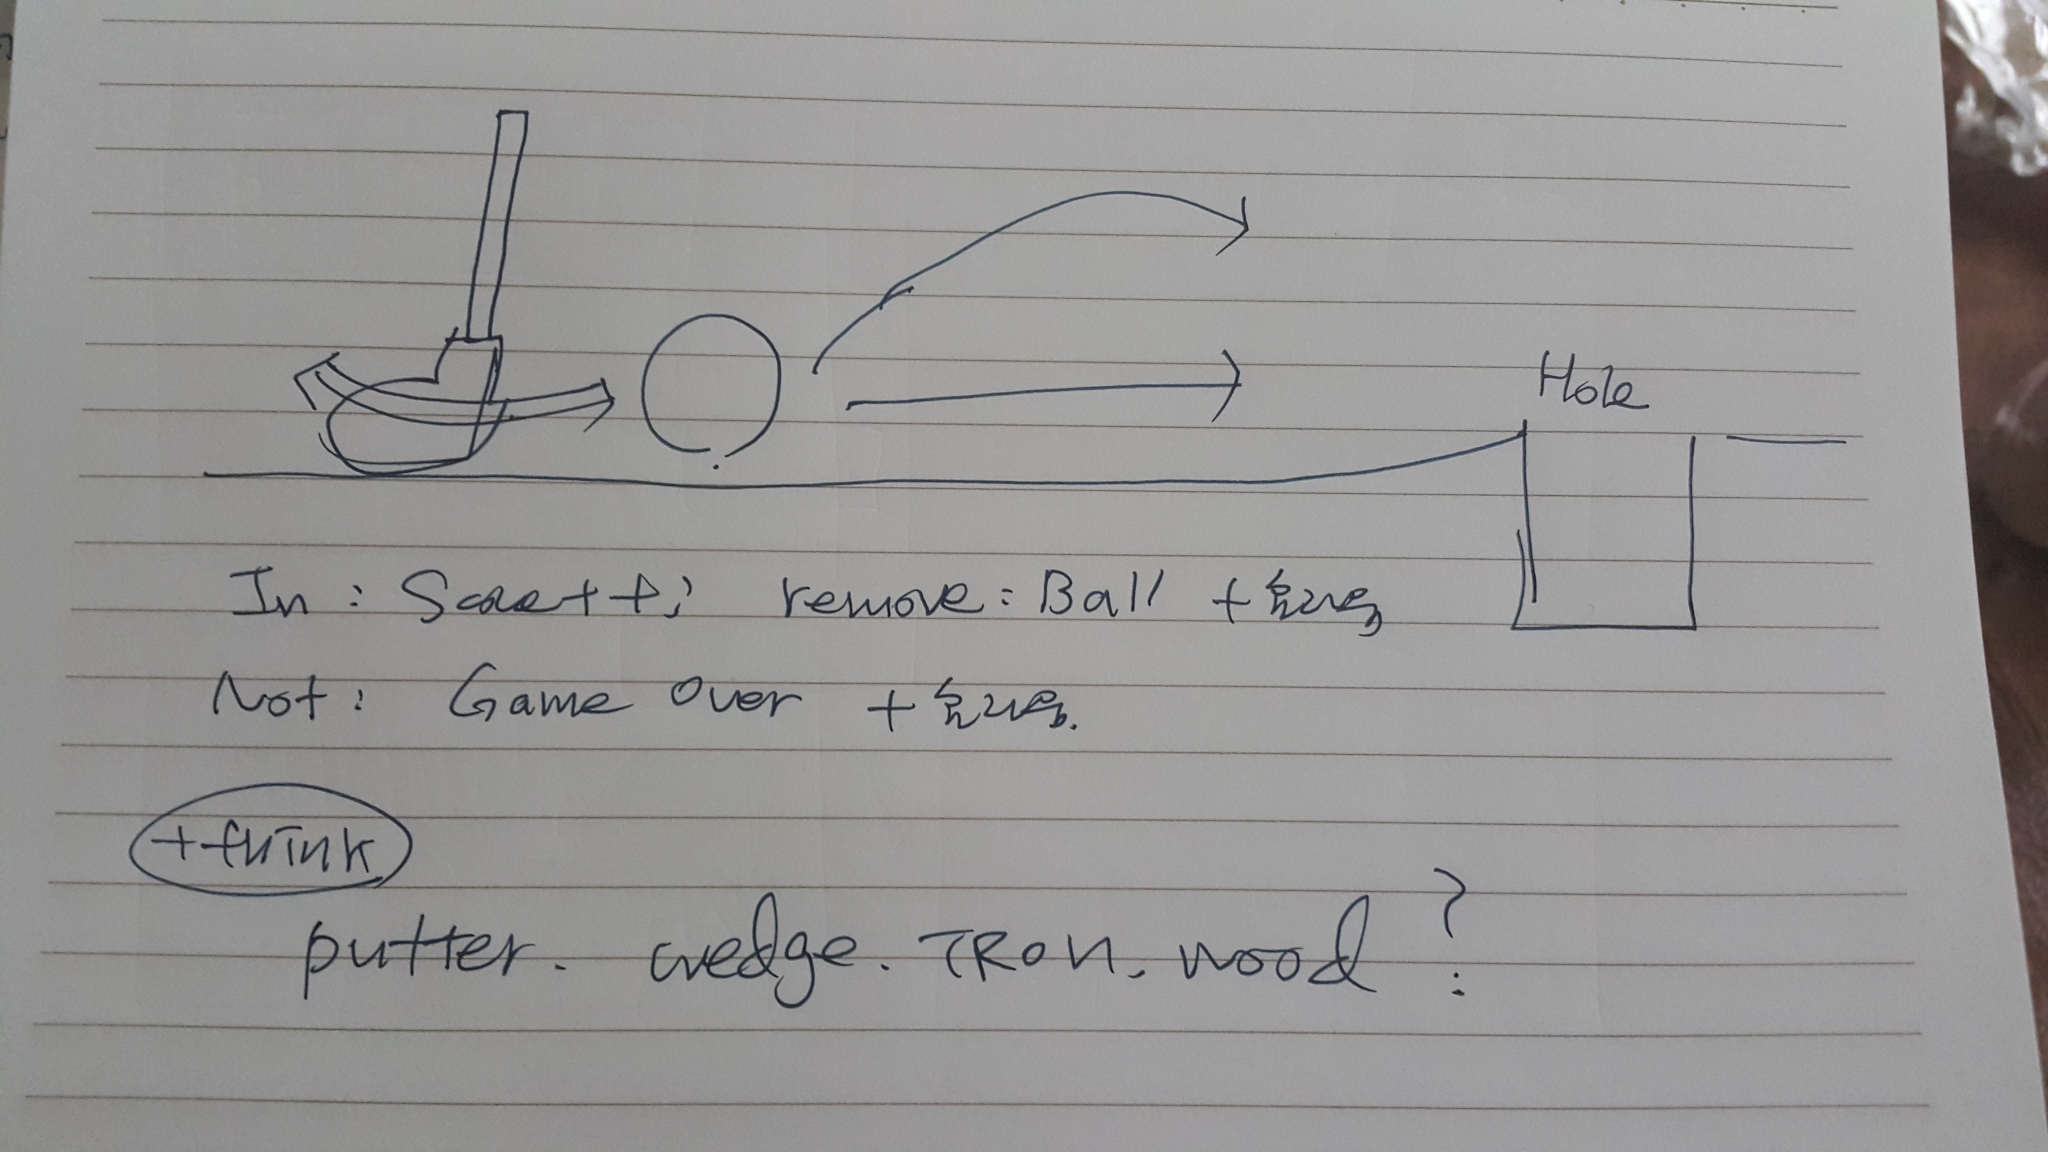 Hole
In : Score++; remove : Ball + 효과음
Not : Game Over + 효과음.
+think
putter. wedge. IRon. wood?